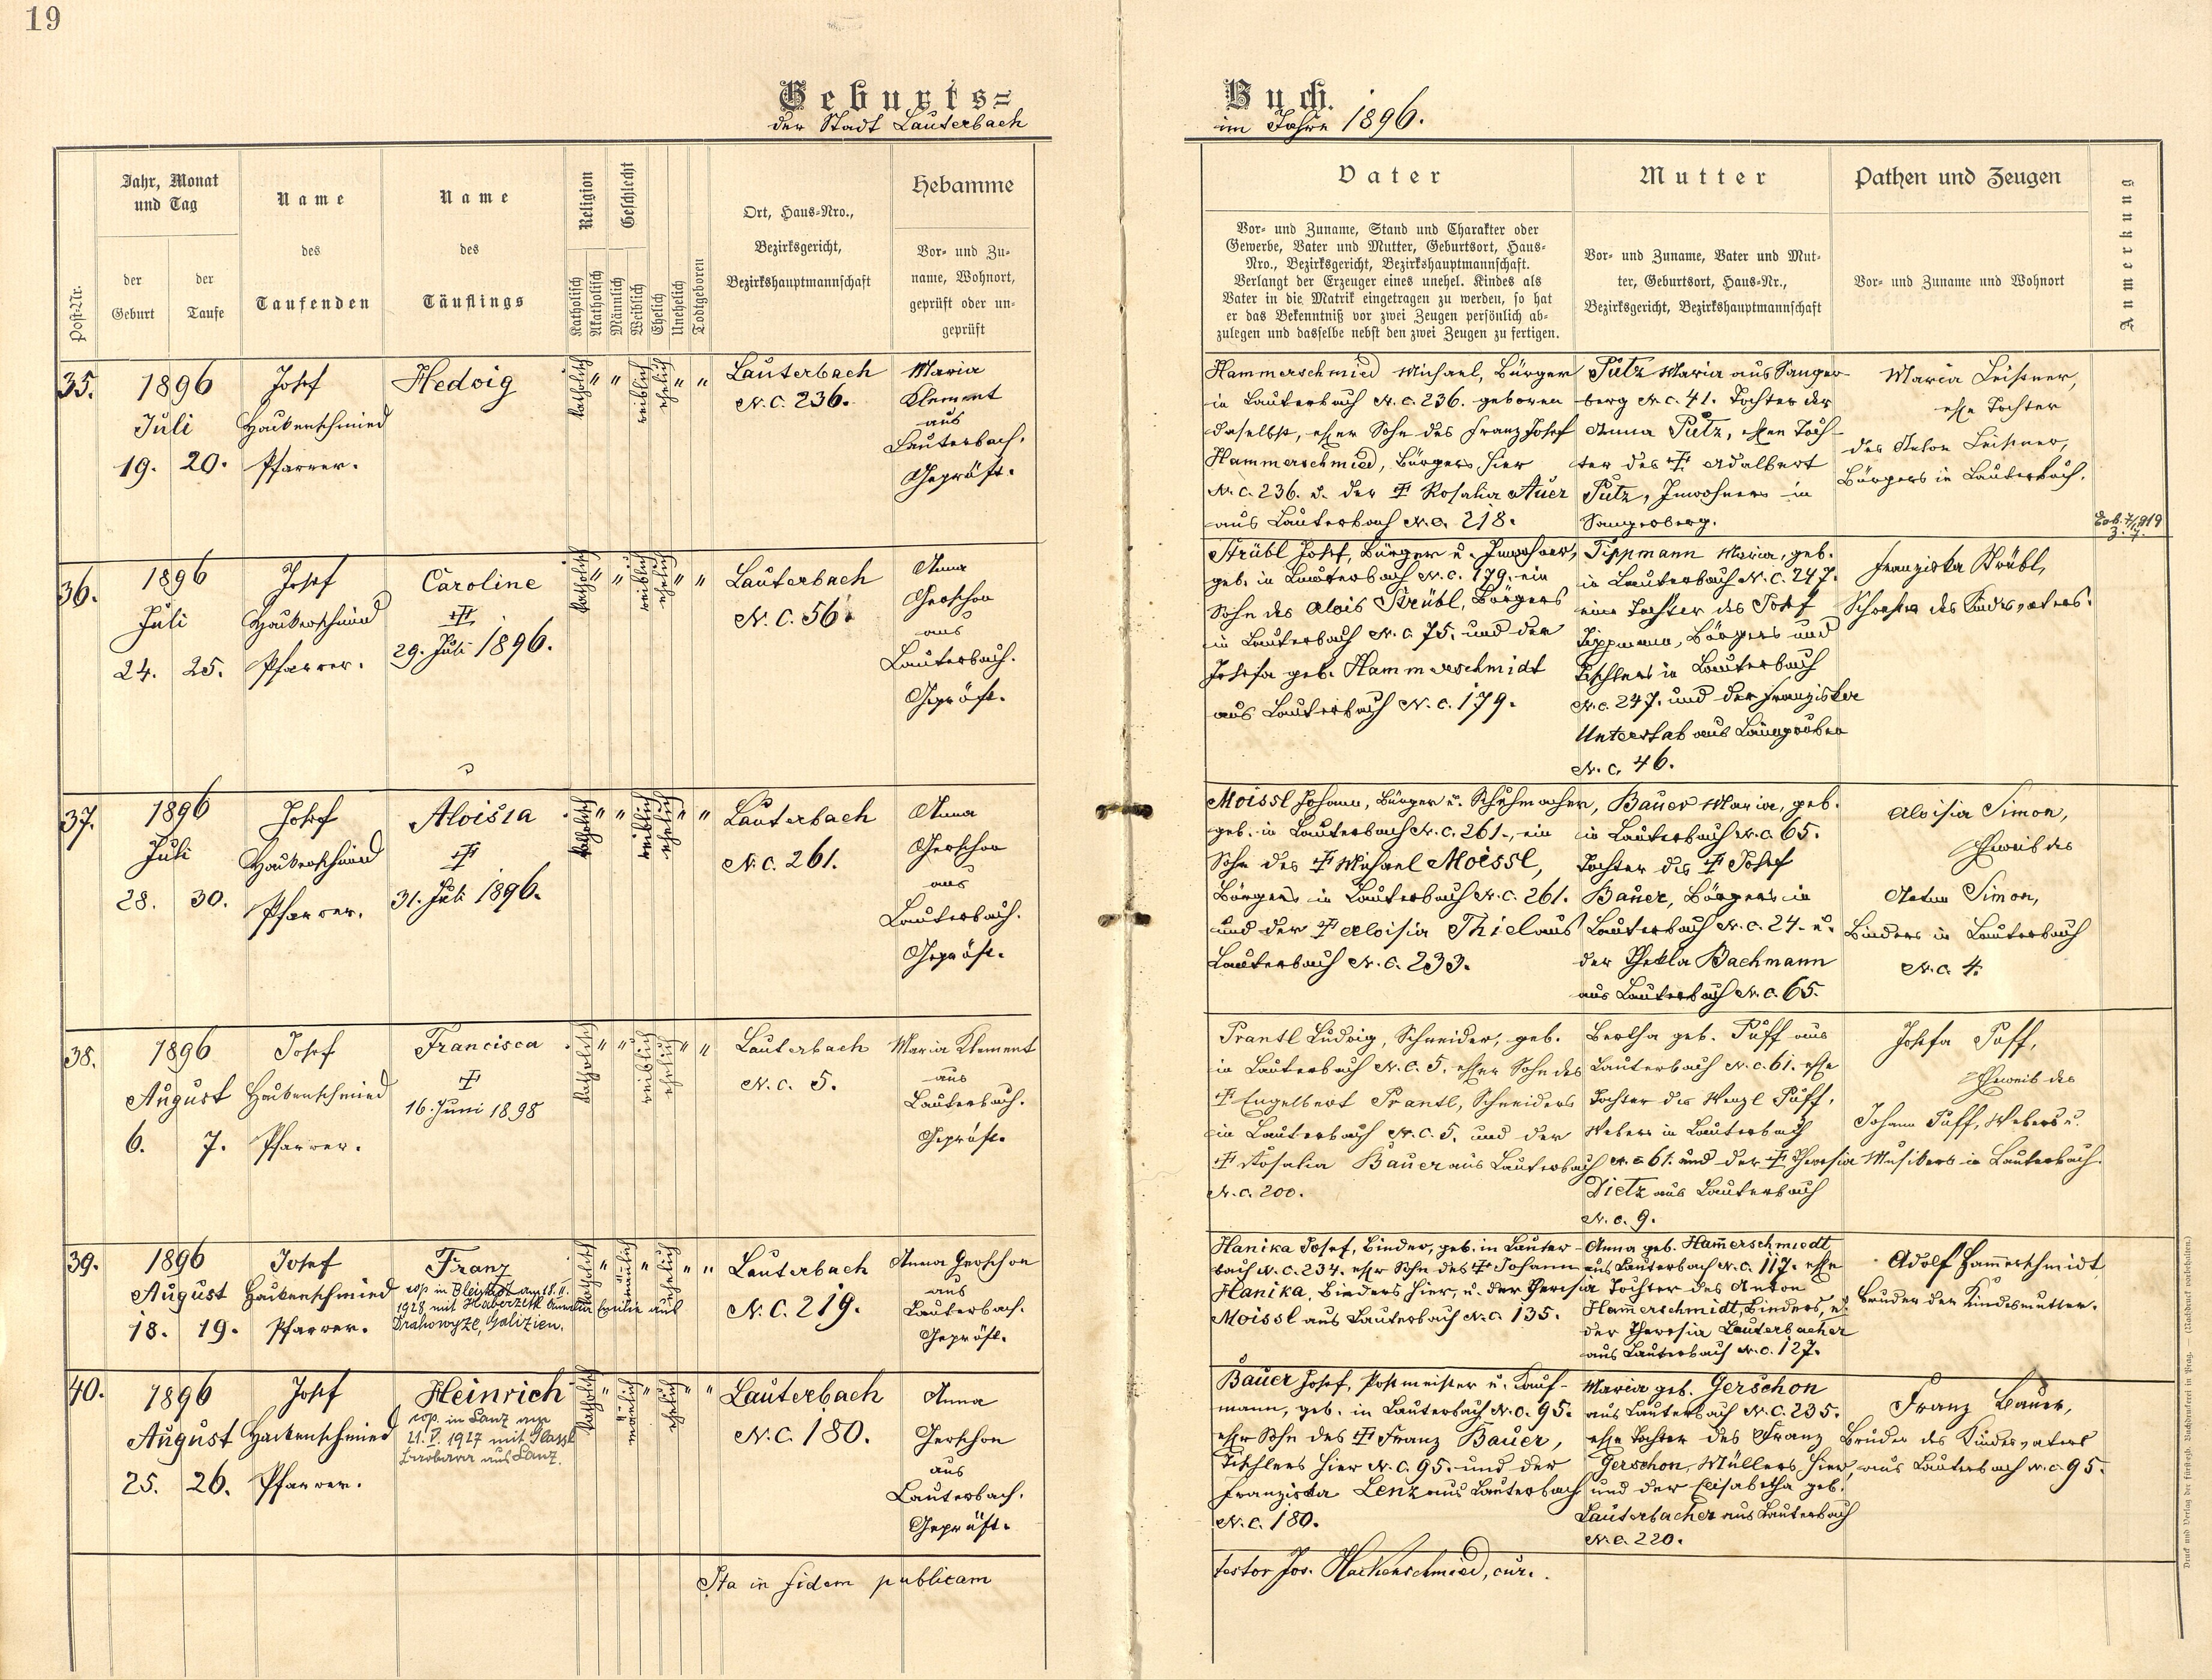 19
Geburts=
der Stadt Lauterbach
Buch.
im Jahre 1896.
Post-Nr.
Jahr, Monat
und Tag
der
Geburt
der
Taufe
Name
des
Taufenden
Name
des
Täuflings
Religion
Katholisch
Akatholisch
Geschlecht
Männlich
Weiblich
Ehelich
Unehelich
Todtgeboren
Ort, Haus-Nro.,
Bezirksgericht,
Bezirkshauptmannschaft
Hebamme
Vor- und Zu-
name, Wohnort,
geprüft oder un-
geprüft
Vater
Vor- und Zuname, Stand und Charakter oder
Gewerbe, Vater und Mutter, Geburtsort, Haus-
Nro., Bezirksgericht, Bezirkshauptmannschaft.
Verlangt der Erzeuger eines unehel. Kindes als
Vater in die Matrik eingetragen zu werden, so hat
er das Bekenntniß vor zwei Zeugen persönlich ab-
zulegen und dasselbe nebst den zwei Zeugen zu fertigen.
Mutter
Vor- und Zuname, Vater und Mut-
ter, Geburtsort, Haus-Nr.,
Bezirksgericht, Bezirkshauptmannschaft
Pathen und Zeugen
Vor- und Zuname und Wohnort
Anmerkung
35.
1896
Juli
19. 20.
Josef
Hackenschmied
Pfarrer.
Hedwig
katholisch " " weiblich ehelich " "
Lauterbach
N. C. 236.
Maria
Klement
aus
Lauterbach.
Geprüft.
Hammerschmied Michael, Bürger
in Lauterbach N. C. 236. geboren
daselbst, ehler Sohn des Franz Josef
Hammerschmied, Bürgers hier
N. C. 236. u. der ‡ Rosalia Auer
aus Lauterbach N. C. 218.
Pütz Maria aus Sanger-
berg N. C. 41. Tochter der
Anna Pütz, ehlen Toch-
ter des ‡ Adalbert
Pütz, Inwohners in
Sangerberg.
Maria Leistner,
ehle Tochter
des Anton Leistner,
Bürgers in Lauterbach.
36.
1896
Juli
24. 25.
Josef
Hackenschmied
Pfarrer.
Caroline
‡
29. Juli 1896.
katholisch " " weiblich ehelich " "
Lauterbach
N. C. 56.
Anna
Gerschon
aus
Lauterbach.
Geprüft.
Strübl Josef, Bürger u. Inwohner,
geb. in Lauterbach N. C. 179. ein
Sohn des Alois Strübl, Bürgers
in Lauterbach N. C. 75. und der
Josefa geb. Hammerschmidt
aus Lauterbach N. C. 179.
Tippmann Maria, geb.
in Lauterbach N. C. 247.
eine Tochter des Josef
Tippmann, Bürgers und
Tischlers in Lauterbach
N. C. 247. und der Franziska
Unterstab aus
N. C. 46.
Franziska Strübl,
Schwester des Kindesvaters.
37.
1896
Juli
28. 30.
Josef
Hackenschmied
Pfarrer.
Aloisia
‡
31. Juli 1896.
katholisch " " weiblich ehelich " "
Lauterbach
N. C. 261.
Anna
Gerschon
aus
Lauterbach.
Geprüft.
Moissl Johann, Bürger u. Schuhmacher,
geb. in Lauterbach N. C. 261., ein
Sohn des ‡ Michael Moissl,
Bürgers in Lauterbach N. C. 261.
und der ‡ Aloisia Thiel aus
Lauterbach N. C. 233.
Bauer Maria, geb.
in Lauterbach N. C. 65.
Tochter des ‡ Josef
Bauer, Bürgers in
Lauterbach N. C. 24. u.
der Thekla Bachmann
aus Lauterbach N. C. 65.
Aloisia Simon,
Eheweib des
Anton Simon,
Binders in Lauterbach
N. C. 4.
38.
1896
August
6. 7.
Josef
Hackenschmied
Pfarrer.
Francisca
‡
16. Juni 1898
katholisch " " weiblich ehelich " "
Lauterbach
N. C. 5.
Maria Klement
aus
Lauterbach.
Geprüft.
Prantl Ludwig, Schneider, geb.
in Lauterbach N. C. 5. ehler Sohn des
‡ Engelbert Prantl, Schneiders
in Lauterbach N. C. 5. und der
‡ Rosalia Bauer aus Lauterbach
N. C. 200.
Bertha geb. Puff aus
Lauterbach N. C. 61. ehle
Tochter des Wenzl Puff,
Webers in Lauterbach
N. C. 61. und der ‡ Theresia
Dietz aus Lauterbach
N. C. 9.
Josefa Puff,
Eheweib des
Johann Puff, Webers u.
Musikers in Lauterbach.
39.
1896
August
18. 19.
Josef
Hackenschmied
Pfarrer.
Franz
cop. in Bleistadt am 18. II.
1928 mit Emilie aus
Drahowyze, Galizien.
katholisch " männlich " ehelich " "
Lauterbach
N. C. 219.
Anna Gerschon
aus
Lauterbach.
Geprüft.
Hanika Josef, Binder, geb. in Lauter-
bach N. C. 234. ehler Sohn des ‡ Johann
Hanika, Binders hier, u. der Theresia
Moissl aus Lauterbach N. C. 135.
Anna geb. Ham̅erschmiedt
aus Lauterbach N. C. 117. ehle
Tochter des Anton
Ham̅erschmidt, Binders, u.
der Theresia Lauterbacher
aus Lauterbach N. C. 127.
Adolf Ham̅erschmidt
Bruder der Kindesmutter.
40.
1896
August
25. 26.
Josef
Hackenschmied
Pfarrer.
Heinrich
cop. in Lanz am
21. V. 1927 mit
Barbara aus Lanz.
katholisch " männlich " ehelich " "
Lauterbach
N. C. 180.
Anna
Gerschon
aus
Lauterbach.
Geprüft.
Bauer Josef, Postmeister u. Kauf-
mann, geb. in Lauterbach N. C. 95.
ehler Sohn des ‡ Franz Bauer,
Tischlers hier N. C. 95. und der
Franziska Lenz aus Lauterbach
N. C. 180.
Maria geb. Gerschon
aus Lauterbach N. C. 235.
ehle Tochter des Franz
Gerschon, Müllers hier,
und der Elisabetha geb.
Lauterbacher aus Lauterbach
N. C. 220.
Franz Bauer,
Bruder des Kindesvaters
aus Lauterbach N. C. 95.
Ita in fidem publicam
testor Jos. Hackenschmied, cur.
Druck und Verlag der fürsterzb. Buchdruckerei in Prag. — (Nachdruck vorbehalten.)